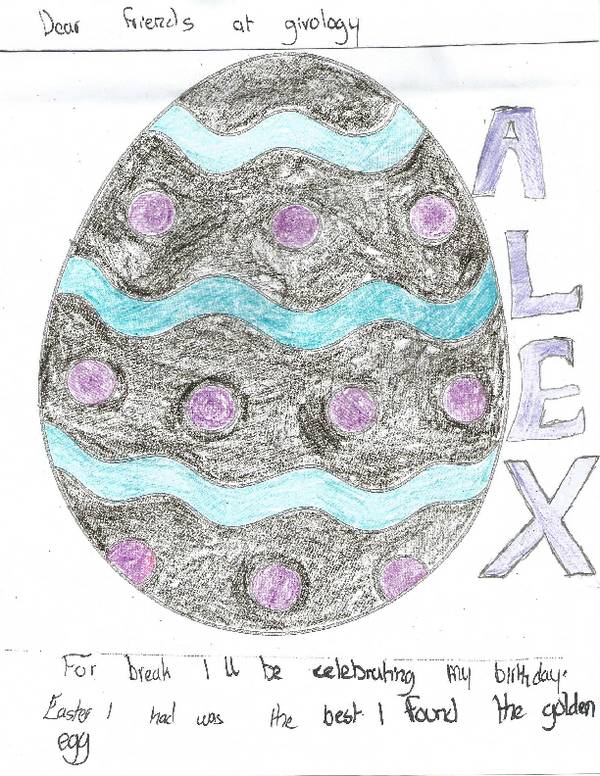 Dear friends at girology
ALEX
For break I ll be celebrating my birthday.
Easter I had was the best. I found the golden
egg